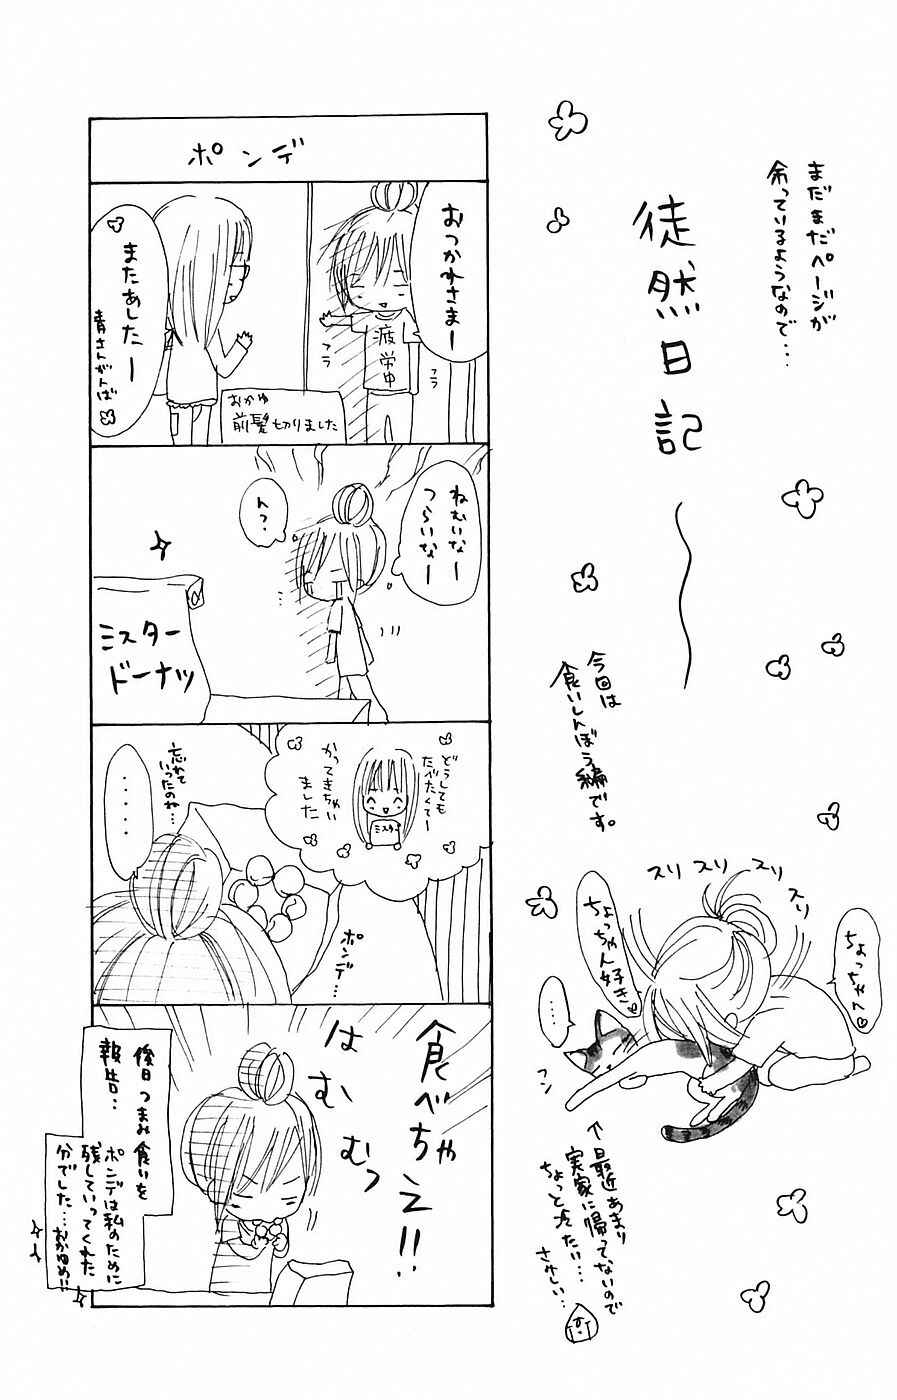 まだまだページが
余っているようなので…
徒然日記
今回は
食いしんぼう編です。
スリ スリ スリ スリ
ちょっちゃん♡
ちょっちゃん好き♡
…
フン
↑最近あまり
実家に帰ってないので
ちょっと冷たい…
さみしい…
ポンデ
おつかれさまー
疲労中
フラ
フラ
またあしたー
青さんがんば
おかゆ
前髪切りました
ねむいなー
つらいなー
ん?
ミスター
ドーナツ
どうしても
たべたくてー
かってきちゃい
ました
ミスター
忘れて
いったのね…
・・・・・
ポンデ…
食べちゃえ!!
はむ
むむっ
後日つまみ食いを
報告…
ポンデは私のために
残していってくれた
分でした…おかゆめ!!